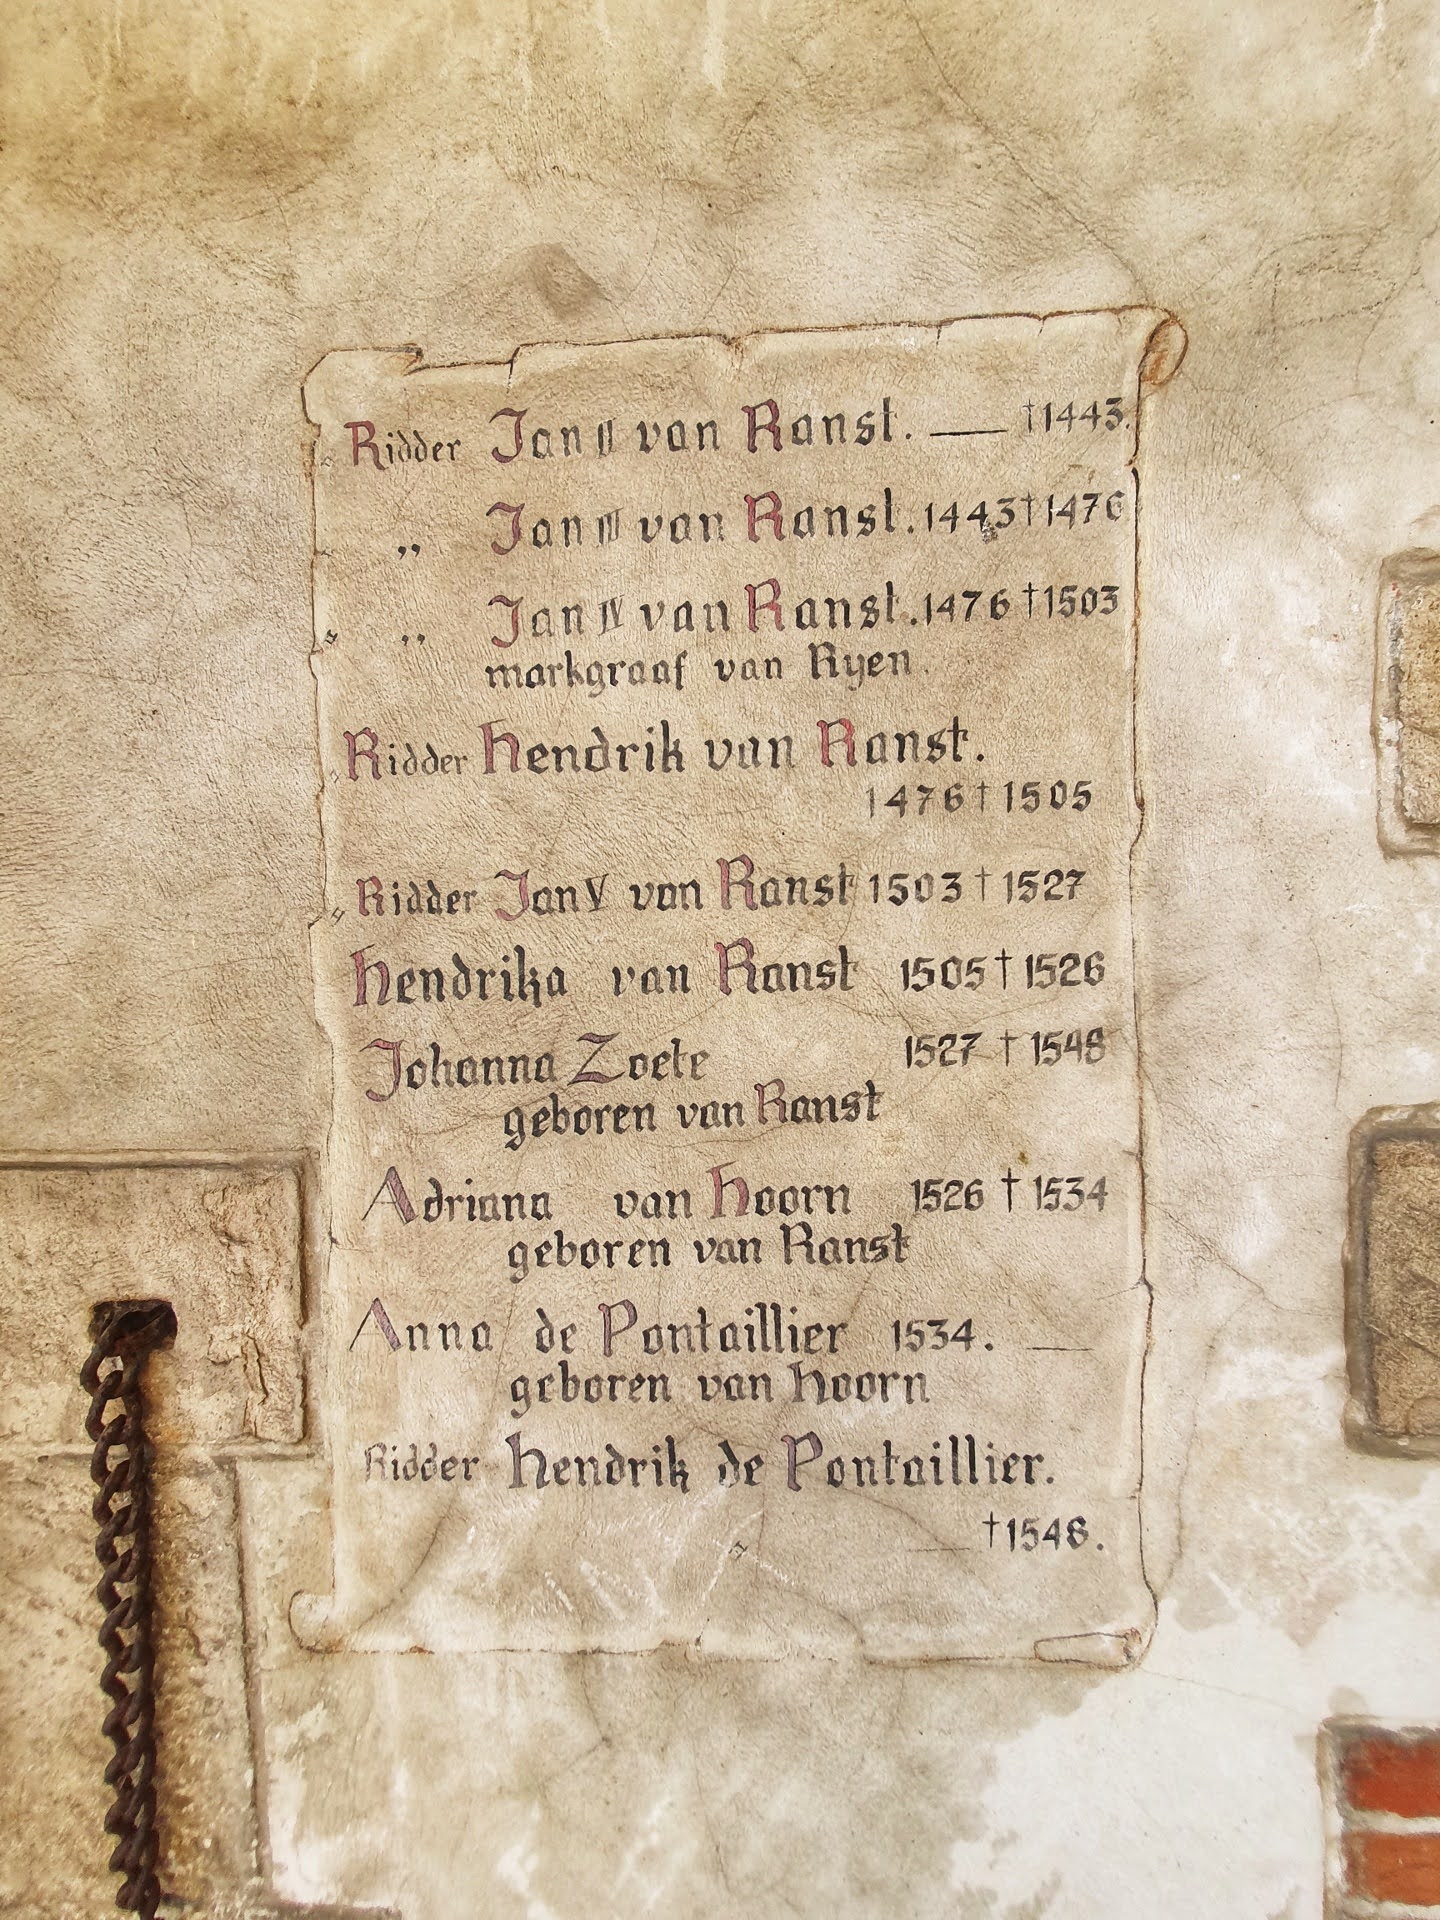 Ridder Jan II van Ranst. — †1443.
„ Jan III van Ranst. 1443†1476
„ Jan IV van Ranst. 1476†1503
markgraaf van Ryen.
Ridder Hendrik van Ranst.
1476†1505
Ridder Jan V van Ranst 1503†1527
Hendrika van Ranst 1505†1526
Johanna Zoete 1527†1548
geboren van Ranst
Adriana van Hoorn 1526†1534
geboren van Ranst
Anna de Pontaillier 1534. —
geboren van Hoorn
Ridder Hendrik de Pontaillier.
— †1548.